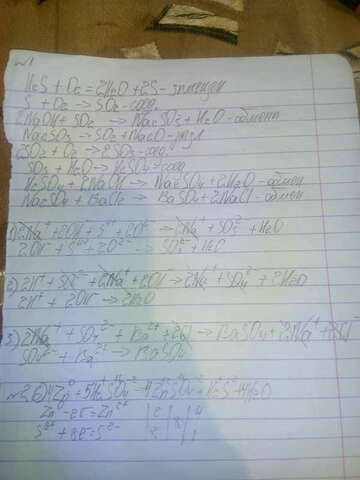 №1
H2S + O2 = 2H2O + 2S - замещен
S + O2 → SO2 - соед.
2NaOH + SO2 → Na2SO3 + H2O - обмен
Na2SO3 → SO2 + Na2O - разл
2SO2 + O2 → 2SO3 - соед.
SO3 + H2O → H2SO4 - соед
H2SO4 + 2NaOH → Na2SO4 + 2H2O - обмен
Na2SO4 + BaCl2 → BaSO4 + 2NaCl - обмен
1) 2Na+ + 2OH- + S4+ + 2O2- → 2Na+ + SO3 2- + H2O
2OH- + S4+ + 2O2- → SO3 2- + H2O
2) 2H+ + SO4 2- + 2Na+ + 2OH- → 2Na+ + SO4 2- + 2H2O
2H+ + 2OH- → 2H2O
3) 2Na+ + SO4 2- + Ba2+ + 2Cl- → BaSO4 + 2Na+ + 2Cl-
SO4 2- + Ba2+ → BaSO4
4Zn + 5H2SO4 → 4ZnSO4 + H2S + 4H2O
Zn - 2e = Zn2+ | 2 | 8 | 4
S6+ + 8e = S2- | 8 | | 1